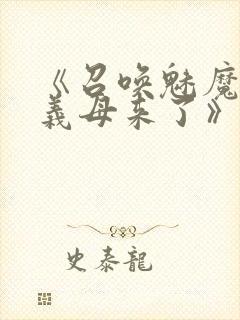 《召唤魅魔
義母来了》
史泰龍